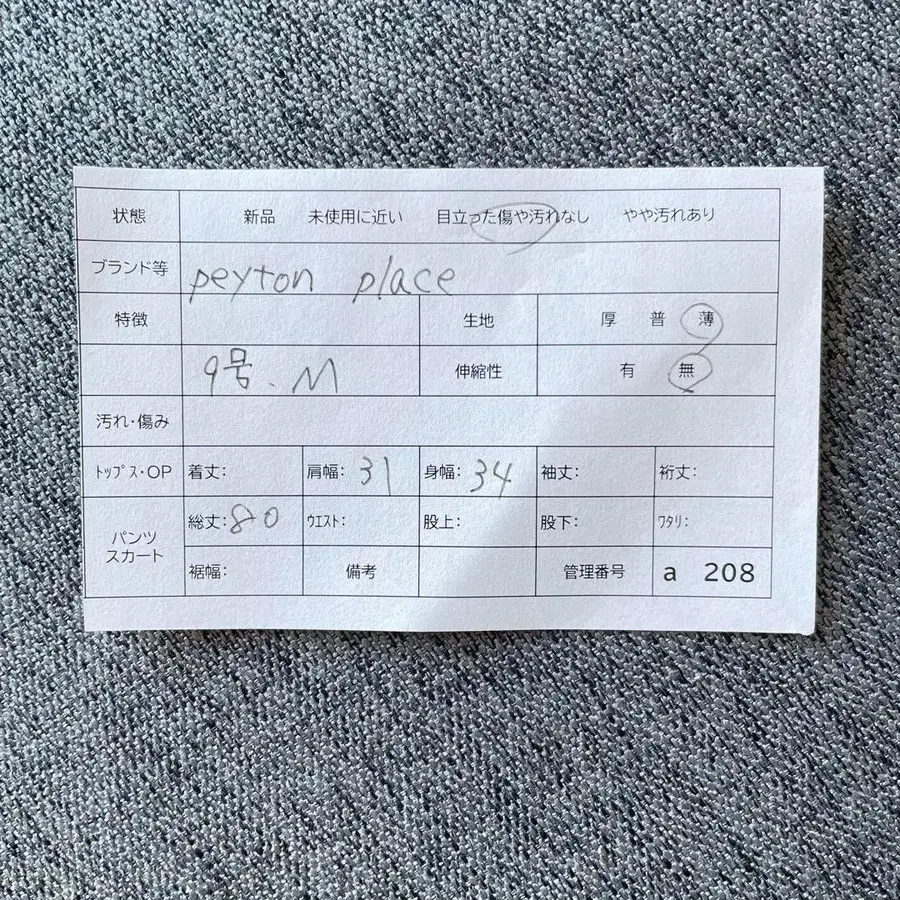 状態 新品 未使用に近い 目立った傷や汚れなし やや汚れあり
ブランド等 peyton place
特徴 生地 厚 普 薄
9号.M 伸縮性 有 無
汚れ・傷み
ﾄｯﾌﾟｽ・OP 着丈: 肩幅: 31 身幅: 34 袖丈: 裄丈:
パンツ スカート
総丈: 80 ｳｴｽﾄ: 股上: 股下: ﾜﾀﾘ:
裾幅: 備考 管理番号 a 208